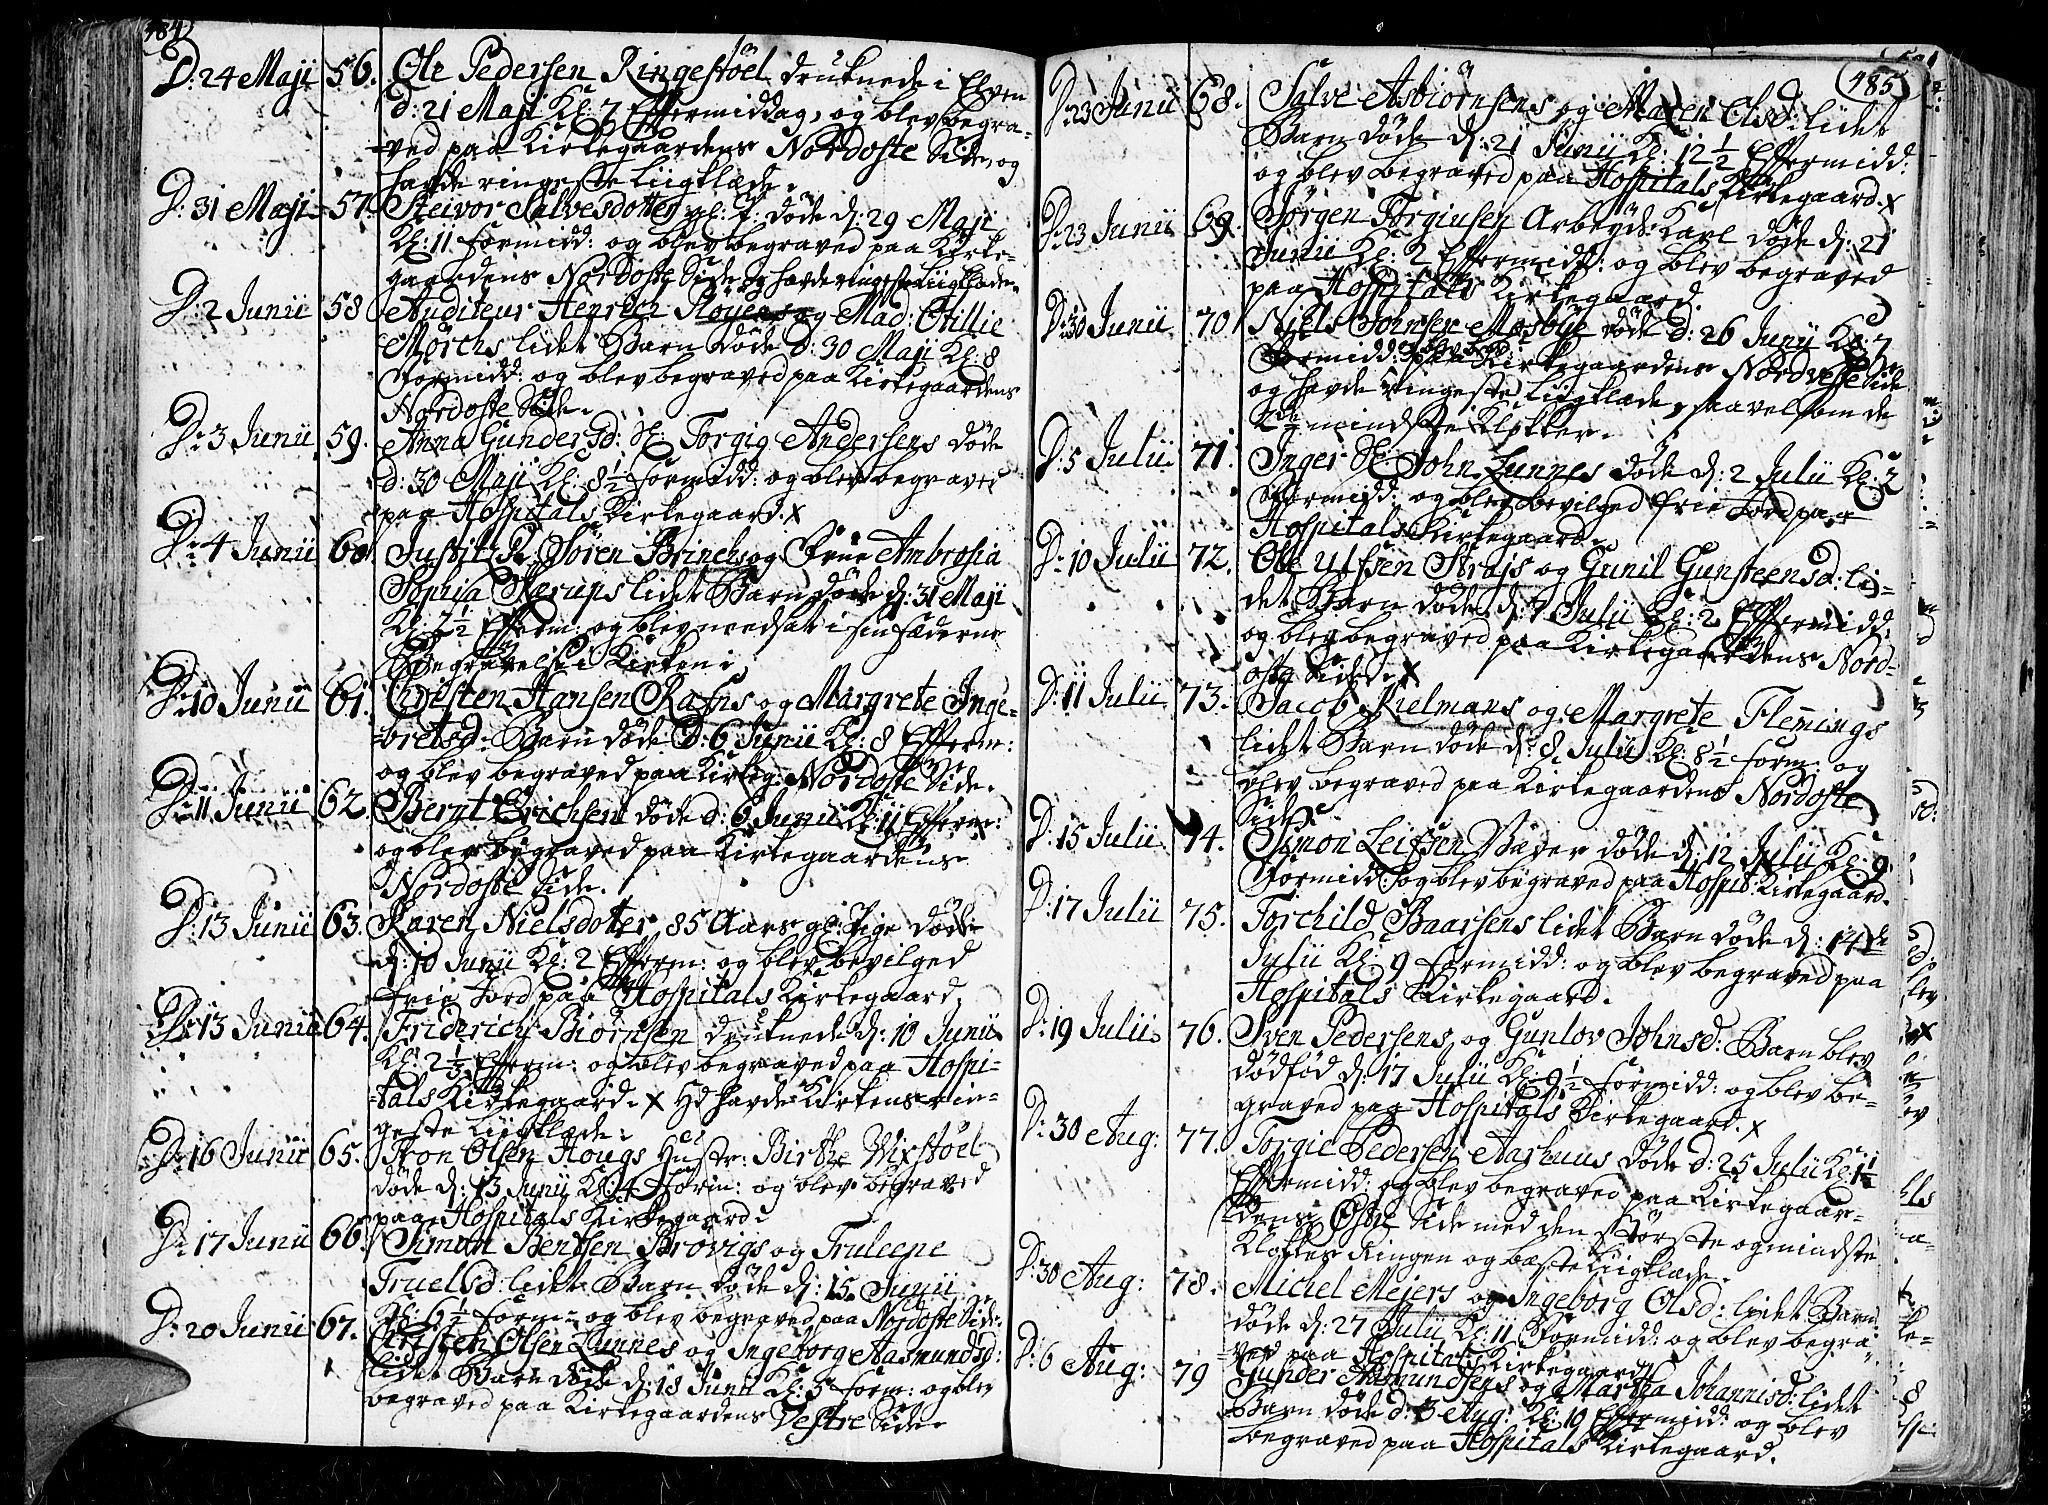 484
D: 24 Maji 56. Ole Pedersen Ringestöel druknede i Elven
d: 21 Maji Kl: 7 Effermiddag, og blev begra-
ved paa Kirkegaardens Nordoste Side, og
havde ringeste Liigklæde.
D: 31 Maji 57. Steivor Salvesdotter døde d: 29 Maji
Kl: 11 formidd: og blev begraved paa Kirke-
gaardens Nordoste Side og havde ringeste Liigklæde.
D: 2 Junii 58 Auditeur Henrich Röyers og Mad: Otillie
Mörchs lidet Barn döde d: 30 Maji Kl: 8
Formidd: og blev begraved paa Kirkegaardens
Nordoste Side.
D: 3 Junii 59. Anna Gundersd: Torgig Andersens döde
d: 30 Maji Kl: 8 1/2 formidd: og blev begraved
paa Hospitals Kirkegaard. x
D: 4 Junii 60. Justitz R. Sören Brinchs og Frue Ambrosia
Sophia Stærups lidet Barn döde d: 31 Maji
Kl: 2 1/2 Efferm: og blev needsat i sin fæderne
Begravelse i Kirken.
D: 10 Junii 61. Christen Hansen Rafns og Margrete Inge-
bretsd: Barn döde D: 6 Junii Kl: 8 Efferm:
og blev begraved paa Kirkeg: Nordoste Side.
D: 11 Junii 62. Bernt Erichsen döde d: 6 Junii Kl: 11 Efferm:
og blev begraved paa Kirkegaardens
Nordoste Side.
D: 13 Junii 63. Karen Nielsdotter, 85 Aars gl: Pige döde
d: 10 Junii Kl: 2 Efferm: og blev bevilged
frie Jord paa Hospitals Kirkegaard.
D: 13 Junii 64. Friderich Biörnsen druknede d: 10 Junii
Kl: 2 1/2 Efferm: og blev begraved paa Hospi-
tals Kirkegaard. x Hd havde Kirkens rin-
geste Liigklæde.
D: 16 Junii 65. Tron Olsen Hougs Hustr: Birthe Wixstöel
döde d: 13 Junii Kl: 4 Form: og blev begraved
paa Hospitals Kirkegaard.
D: 17 Junii 66. Simon Bentsen Brovigs og Truleene
Truelsd: lidet Barn döde d: 15 Junii
Kl: 6 1/2 form: og blev begraved paa Nordoste Side.
D: 20 Junii 67. Christen Olsen Lunnes og Ingeborg Aasmundsd:
lidet Barn döde d: 18 Junii Kl: 5 form: og blev
begraved paa Kirkegaardens Vestre Side.
485
D: 23 Junii 68. Salve Asbiörnsens og Maren Olsd: lidet
Barn döde d: 21 Junii Kl: 12 1/2 Effermidd:
og blev begraved paa Hospitals Kirkegaard. x
D: 23 Junii 69. Jörgen Torgiusen Arbeyds Karl döde d: 21
Junii Kl: 2 Effermidd: og blev begraved
paa Hospitals Kirkegaard.
D: 30 Junii 70 Niels Johnsen Mosbÿe döde d: 26 Junii Kl: 7
Formidd: Kirkegaardens Nordveste Side
og havde Ringeste Liigklæde, saavelsom de
2de mindste Klokker.
D: 5 Julii 71. Inger John Lunnes döde d: 2 Julii Kl: 2
Formidd: og blev bevilged frie Jord paa
Hospitals Kirkegaard.
D: 10 Julii 72. Ole Ulfsen Strajs og Gunil Gunsteensd: li-
det Barn döde d: 7 Julii Kl: 2 Effermidd:
og blev begraved paa Kirkegaardens Nord-
oste Side. x
D: 11 Julii 73. Jacob Kielmans og Margrete Flemings
lidet Barn döde d: 8 Julii Kl: 8 1/2 form: og
blev begraved paa Kirkegaardens Nordoste
Side.
D: 15 Julii 74. Simon Leifsen Bøder döde d: 12 Julii Kl: 9
Formidd: og blev begraved paa Hospit: Kirkegaard.
D: 17 Julii 75. Torchild Baarsens lidet Barn döde d: 14de
Julii Kl: 9 formidd: og blev begraved paa
Hospitals Kirkegaard.
D: 19 Julii 76. Sven Pedersens, og Gunlov Johnsd: Barn blev
dödfød d: 17 Julii Kl: 9 1/2 formidd: og blev be-
graved paa Hospitals Kirkegaard. x
D: 30 Aug: 77. Torgie Pedersen Aarhuus döde d: 25 Julii Kl: 1 1/2
Effermidd: og blev begraved paa Kirkegaar-
dens Østre Side med den störste og mindste
Klokkes Ringen og beste Liigklæde.
D: 30 Aug: 78. Michel Mejers og Ingeborg Olsd: lidet Barn
döde d: 27 Julii Kl: 11 Formidd: og blev begra-
ved paa Hospitals Kirkegaard.
D: 6 Aug: 79 Gunder Aasmundsens og Martha Johannisd: lidet
Barn döde d: 3 Aug: Kl: 10 Effermidd: og blev
begraved paa Hospitals Kirkegaard.